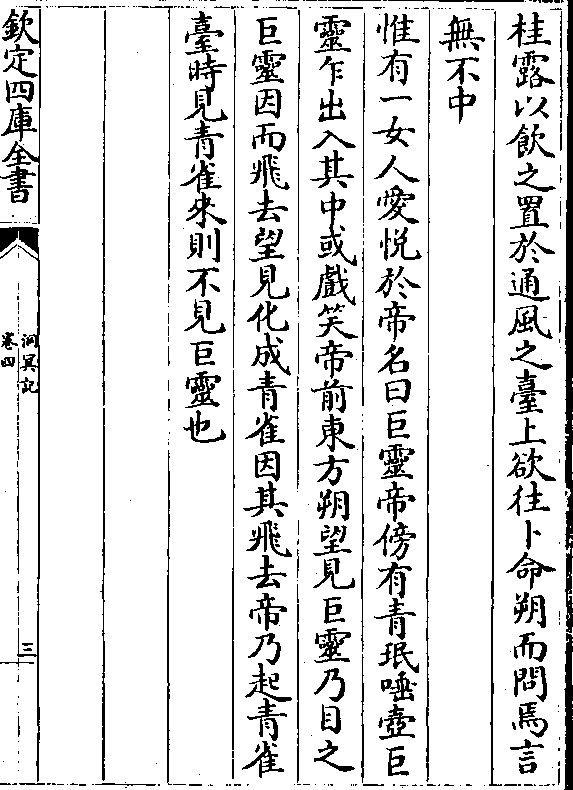 桂露以飲之置於通風之臺上欲往卜命朔而問焉言
無不中
惟有一女人愛悅於帝名曰巨靈帝傍有青珉唾壺巨
靈乍出入其中或戲笑帝前東方朔望見巨靈乃目之
巨靈因而飛去望見化成青雀因其飛去帝乃起青雀
臺時見青雀來則不見巨靈也
欽定四庫全書
洞冥記
卷四
三